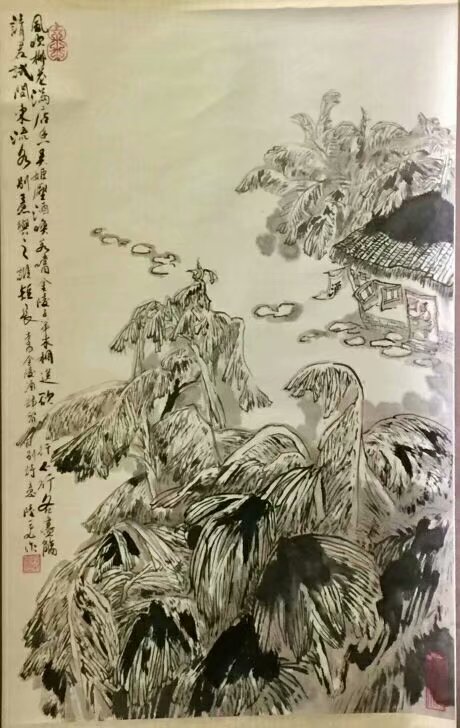 風吹柳花满店香吴姬壓酒唤客嚐金陵子弟来相送欲行不行各盡觴
請君試問東流水别意與之誰短長李白金陵酒肆留别诗意